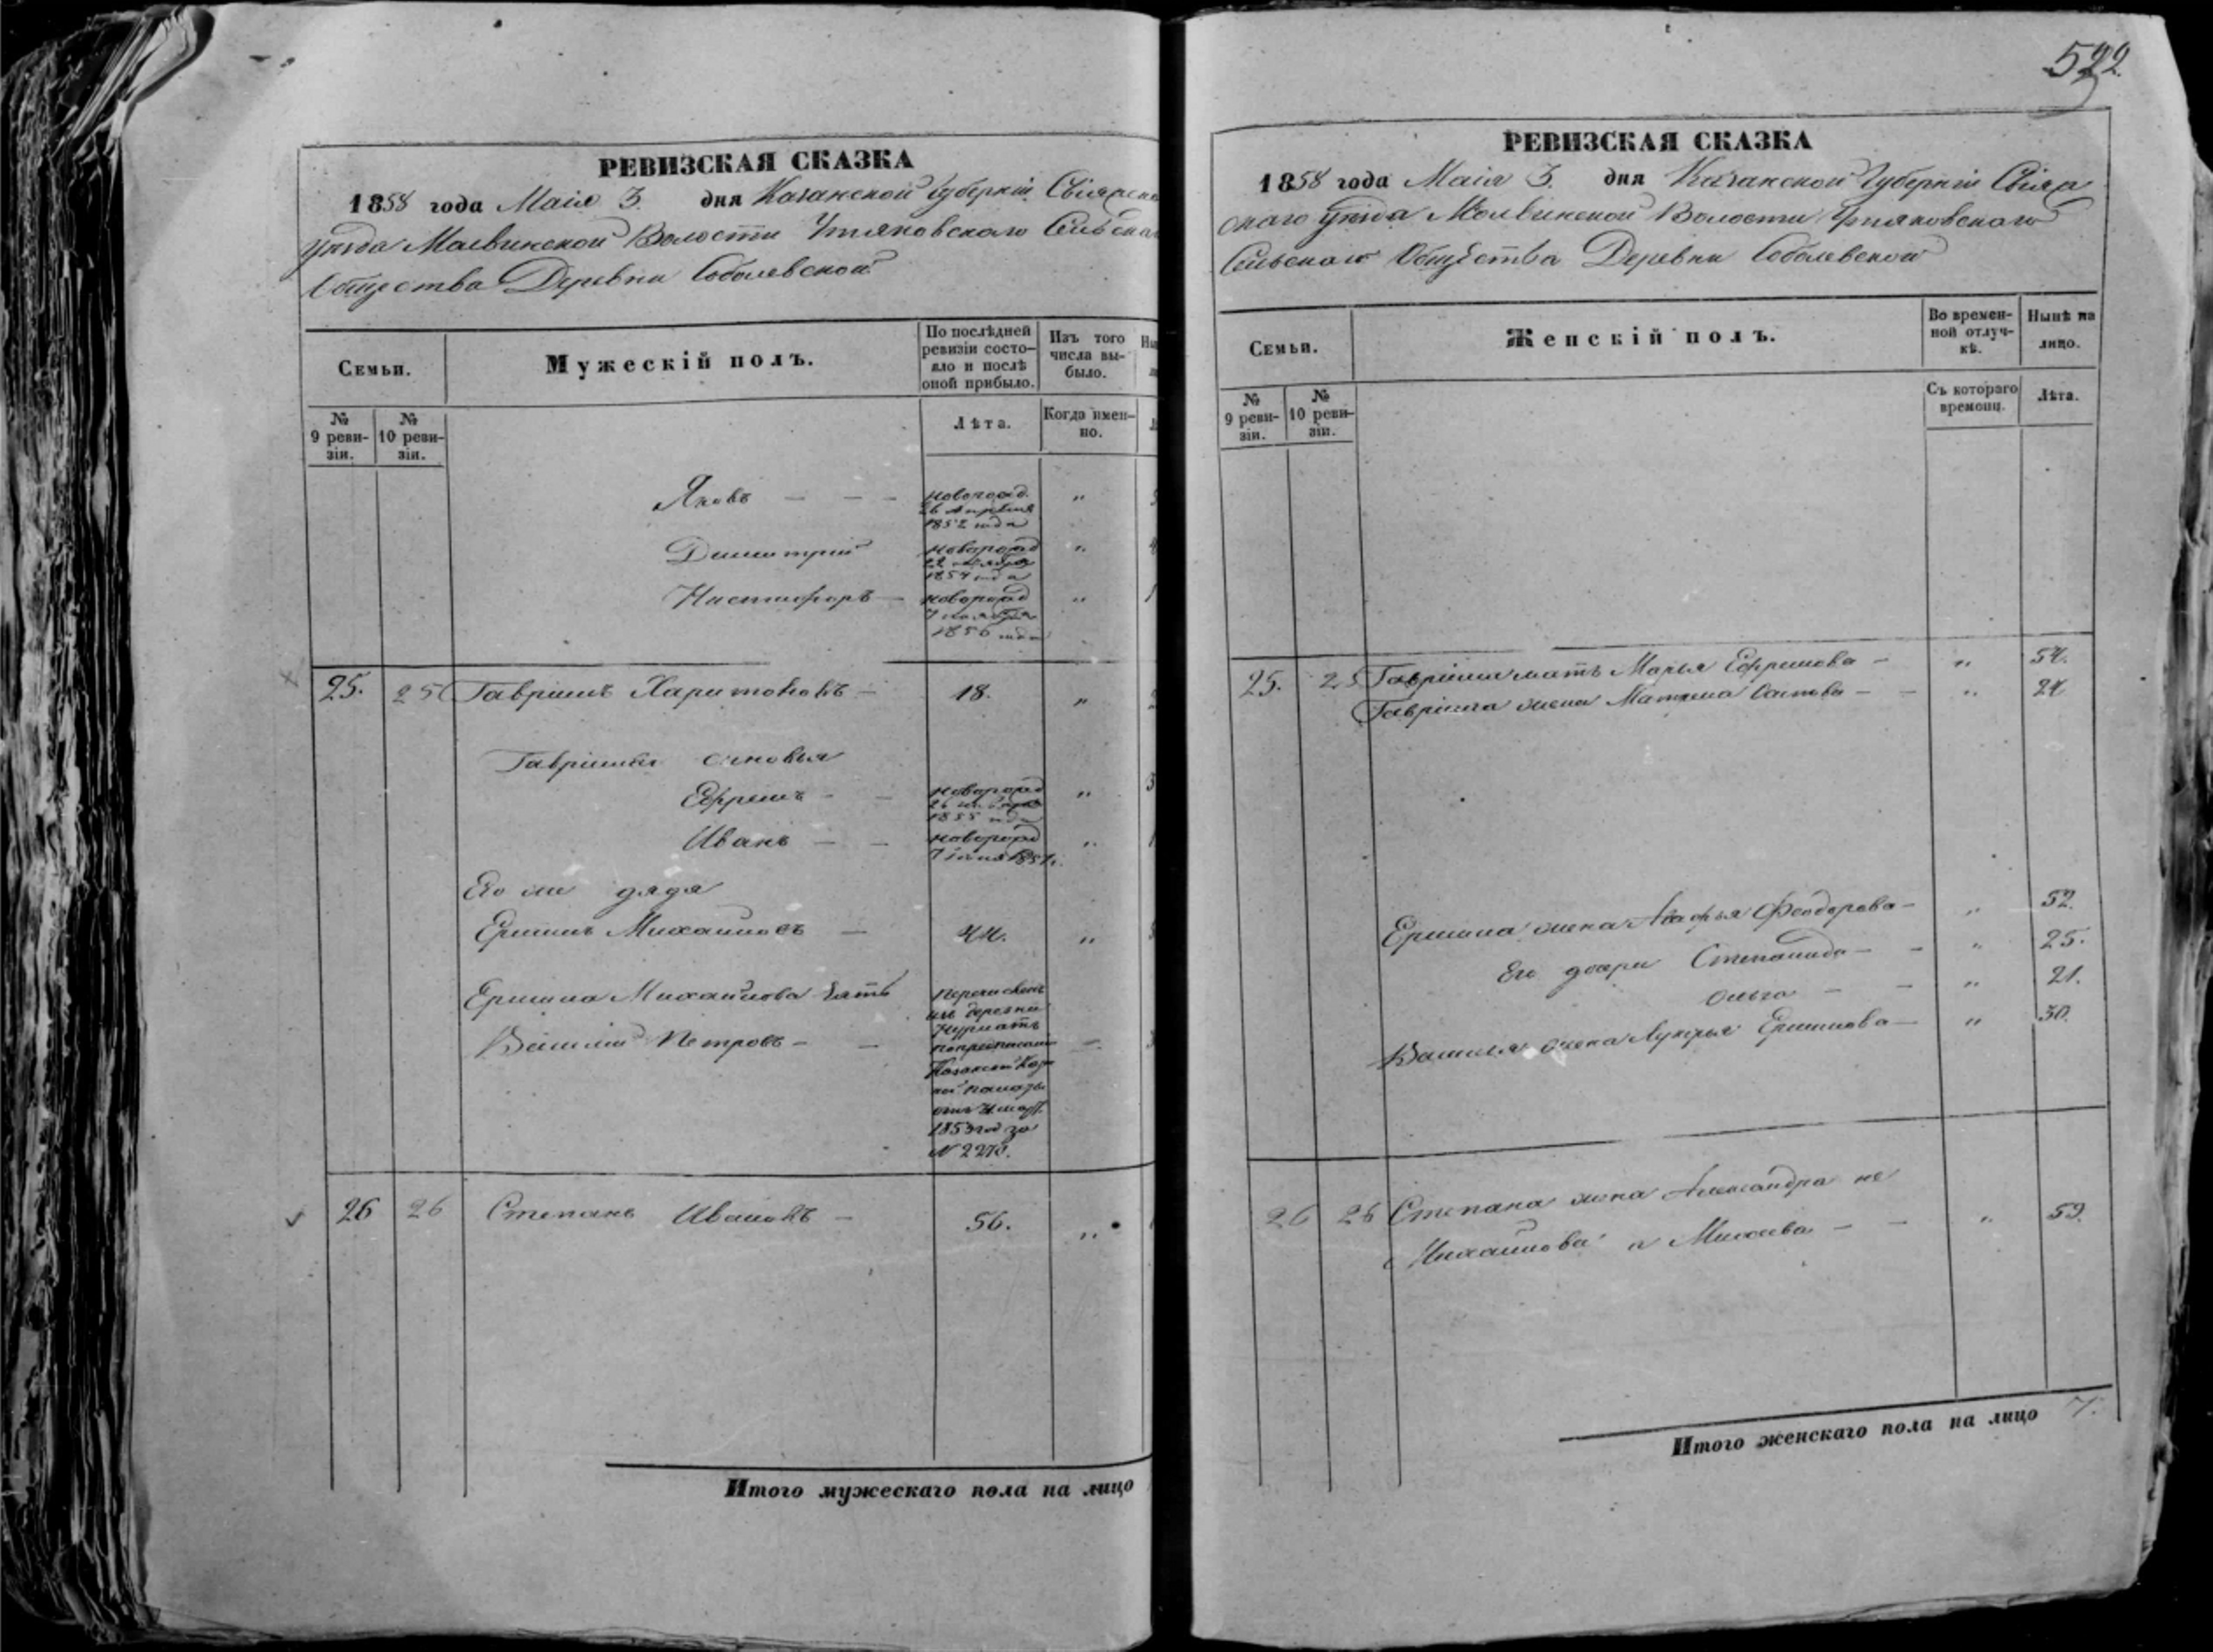 522
РЕВИЗСКАЯ СКАЗКА
1858 года Маія 3. дня Казанской Губерніи Свіяжска
уѣзда Молвинской Волости Утяковскаго Сельска
Общества Деревни Соболевской
Семьи.
Мужескій полъ.
По послѣдней ревизіи состо-
яло и послѣ оной прибыло.
Изъ того числа вы-
было.
№ 9 реви-
зіи.
№ 10 реви-
зіи.
Лѣта.
Когда имен-
но.
Яковъ — — — новорожд. "
26 Апрѣля
1852 года
Димитрий новорожд "
22 октября
1854 года
новорожд "
7 ноября
1856 года
25. 25 Гаврiилъ Харитоновъ — 18. "
Гаврiила сыновья
Ефремъ — — новорожд "
1855 года
Иванъ — — новорожд "
Его же дядя
Ермилъ Михайловъ — 44. "
Ермила Михайлова зять
Василій Петровъ — —
перечисленъ
изъ деревни
по предписанію
Казанской
палаты
отъ
1853 год за
№ 2270.
26 26 Степанъ Ивановъ — 56. "
Итого мужескаго пола на лицо
РЕВИЗСКАЯ СКАЗКА
1858 года Маія 3. дня Казанской Губерніи Свіяж
скаго уѣзда Молвинской Волости Утяковскаго
Сельскаго Общества Деревни Соболевской
Семьи.
Женскій полъ.
Во времен-
ной отлуч-
кѣ.
Нынѣ на лицо.
№ 9 реви-
зіи.
№ 10 реви-
зіи.
Съ котораго времени.
Лѣта.
25. 25 Гаврiила мать Марья Ефремова — " 54.
Гаврiила жена Матрена — — " 24
Ермила жена Агафья Феодорова — " 52.
Его дочери Степанида — — " 25.
Ольга — — " 21.
Василья жена Лукерья Ермилова — " 30.
26 26 Степана жена Александра не
Михайлова а Михеева — — " 59.
Итого женскаго пола на лицо 7.